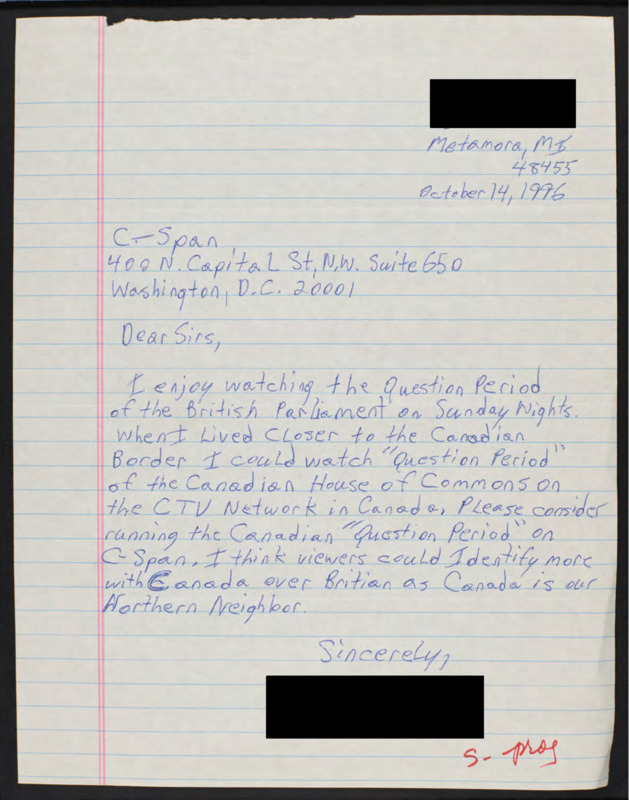 Metamora, MI
48455
October 14, 1996
C-Span
400 N. Capital St, N.W. Suite 650
Washington, D.C. 20001
Dear Sirs,
I enjoy watching the Question Period
of the British Parliament on Sunday Nights.
When I Lived Closer to the Canadian
Border I could watch "Question Period"
of the Canadian House of Commons on
the CTV Network in Canada. Please consider
running the Canadian "Question Period" on
C-Span. I think viewers could Identify more
with Canada over Britian as Canada is our
Northern Neighbor.
Sincerely,
S- prog